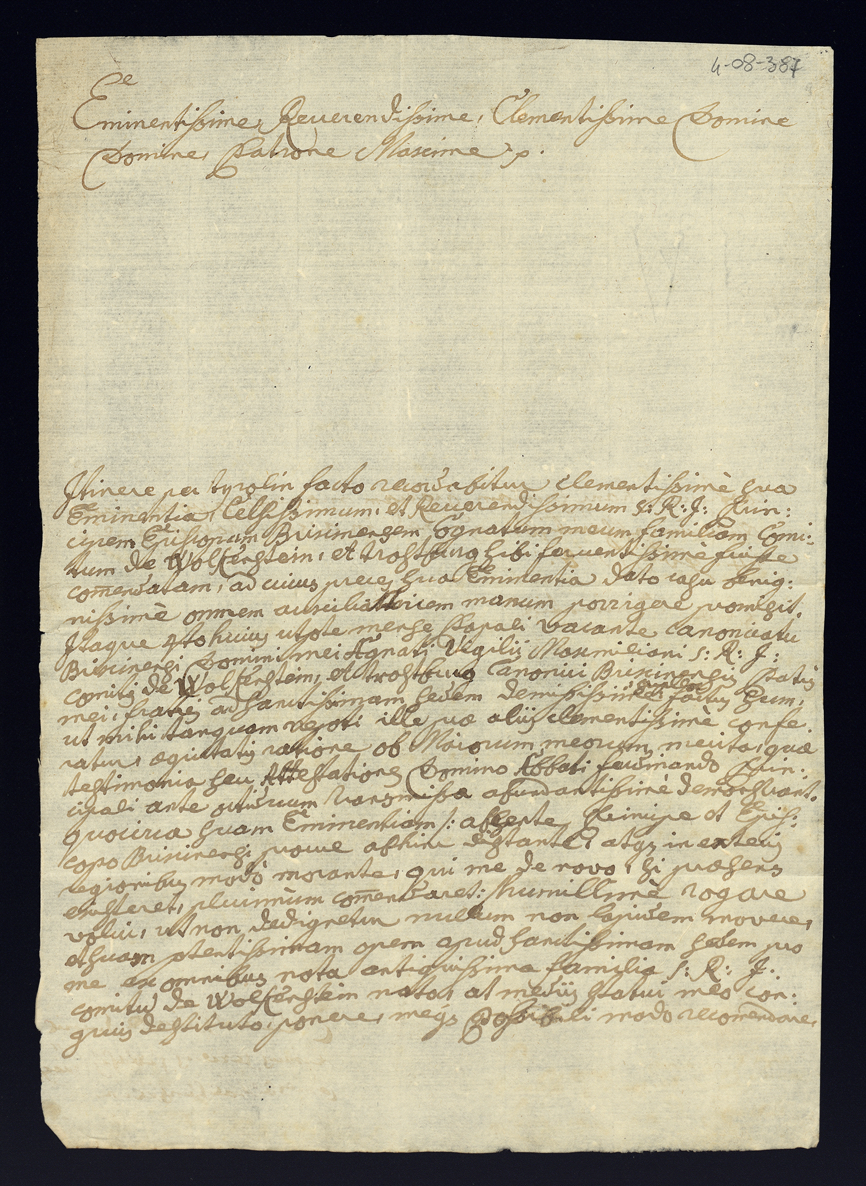 4-08-387
Ee
Eminentissime, Reverendissime, Clementissime Domine
Domine, Patrone Maxime p.
Itinere per tyrolin facto recordabitur clementissimè sua
Eminentia, Celsissimum, et Reverendissimum S: R: J: Prin:
cipem Episcopum Brixinensem Cognatum meum familiam Comi:
tum de Wolkenstein, et trostburg sibi ferventissimè fuisse
comendatam, ad cuius preces sua Eminentia dato casu benig:
nissimè omnem auxiliatricem manum porrigere promisit.
Itaque 4to huius utpote mense Papali vacante canonicatu
Brixinensi Domini mei Agnati Vigilij Maximiliani S: R: J:
comitis de Wolkenstein, et trostburg Canonici Brixinensis Patris
mei, fratris ad sanctissimam sedem demississimè factus sum,
ut mihi tanquam nepoti ille præ alijs clementissimè confe:
ratur, æquitatis ratione ob Maiorum meorum merita, quæ
testimonia seu Attestationes Domino Abbati ferdinando Prin:
cipali ante octiduum transmissa abundantissimè demonstrant.
quocirca suam Eminentiam /: absente Principe et Epis:
copo Brixinensi procul abhinc distante, atque in exteris
regionibus modò morante, qui me de novo, si præsens
existeret, plurimùm comendaret :/ humillimè rogare
volui, ut non dedignetur nullum non lapidem movere,
et suam potentissimam opem apud sanctissimam sedem pro
me ex omnibus nota antiquissima familia S: R: J:
comitum de Wolkenstein nato, at medijs statui meo con:
gruis destituto, ponere, meque Possibili modo recomendare,